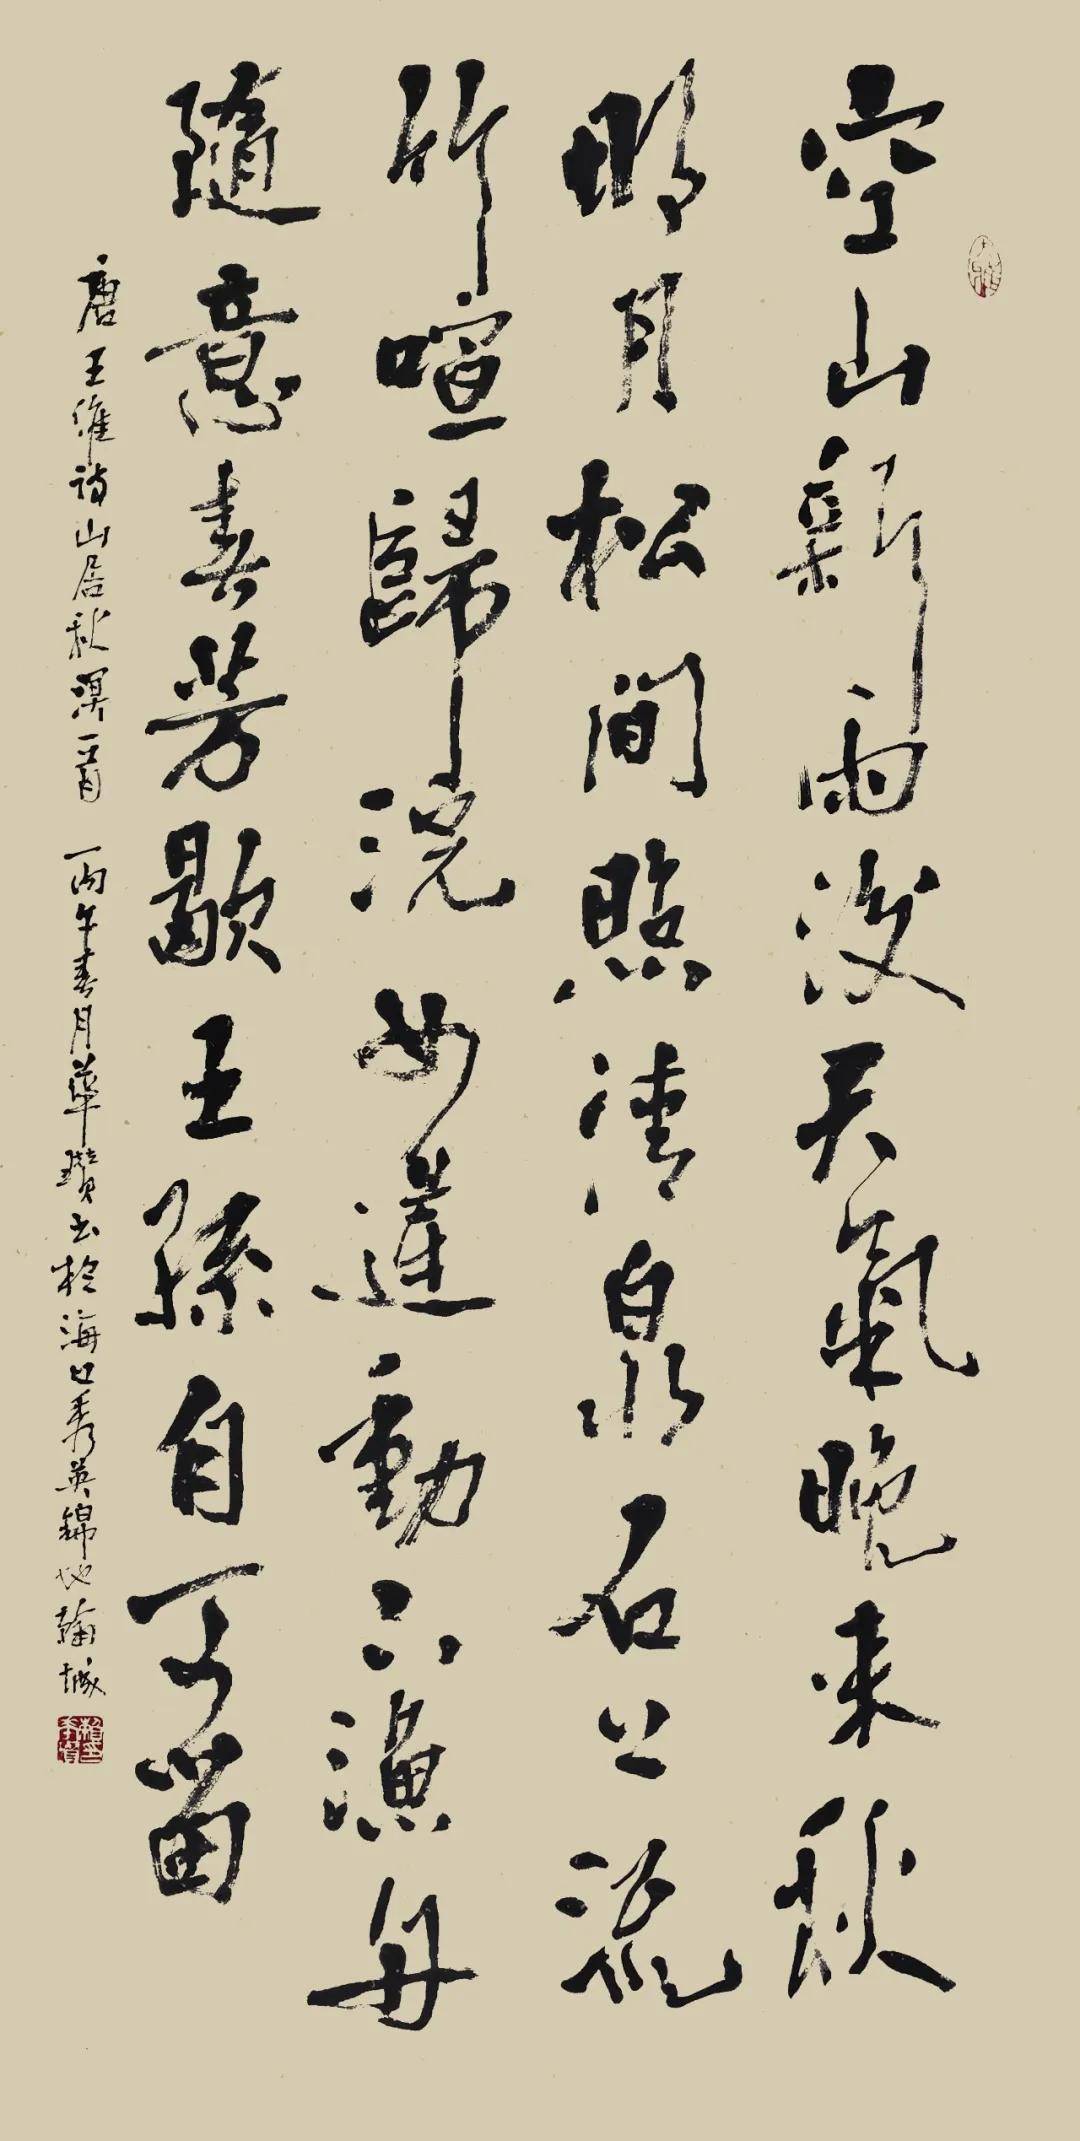 空山新雨後天氣晚来秋
明月松間照清泉石上流
竹喧歸浣女蓮動下漁舟
隨意春芳歇王孫自可留
唐王維詩山居秋暝一首 丙午春月華瓚书於海口秀英錦地翰城